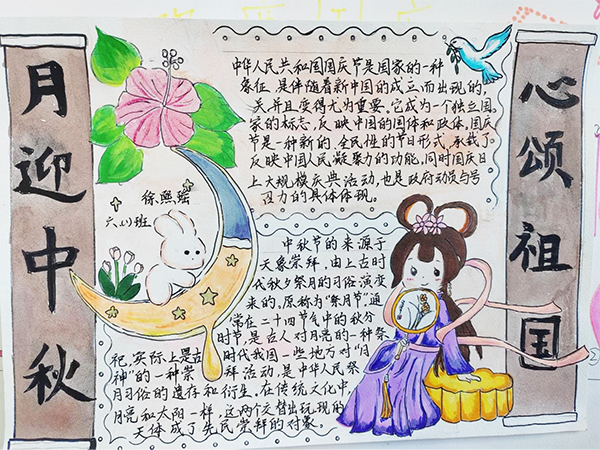 月迎中秋
心颂祖国
中华人民共和国国庆节是国家的一种
象征,是伴随着新中国的成立而出现的,
关并且变得尤为重要。它成为一个独立国
家的标志,反映中国的国体和政体,国庆
节是一种新的、全民性的节日形式,承载了
反映中国人民凝聚力的功能,同时国庆日
上大规模庆典活动,也是政府动员与号
召力的具体体现。
徐熙瑶
六(1)班
中秋节的来源于
天象崇拜,由上古时
代秋夕祭月的习俗演变
来的,原称为“祭月节”,通
常在二十四节气中的秋分
时节,是古人对月亮的一种祭
祀,实际上是古时代我国一些地方对“月
神”的一种崇拜活动,是中华人民祭
月习俗的遗存和衍生。在传统文化中,
月亮和太阳一样,这两个交替出现的
天体成了先民崇拜的对象。